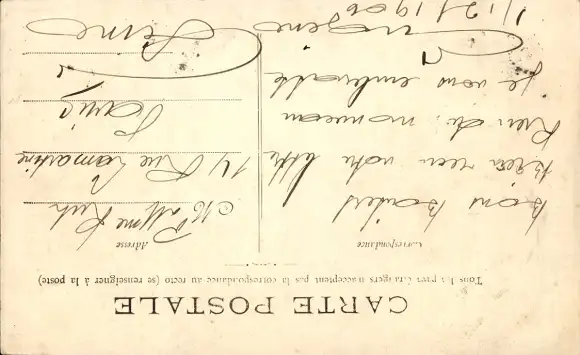 CARTE POSTALE
Tous les pays étrangers n'acceptent pas la correspondance au recto (se renseigner à la poste)
Correspondance
Bons Baisers
Bien reçu votre lettre
Rien de nouveau
Je vous embrasse
Eugène
1/12/1906
Adresse
14 Rue Lamartine
Paris
Seine